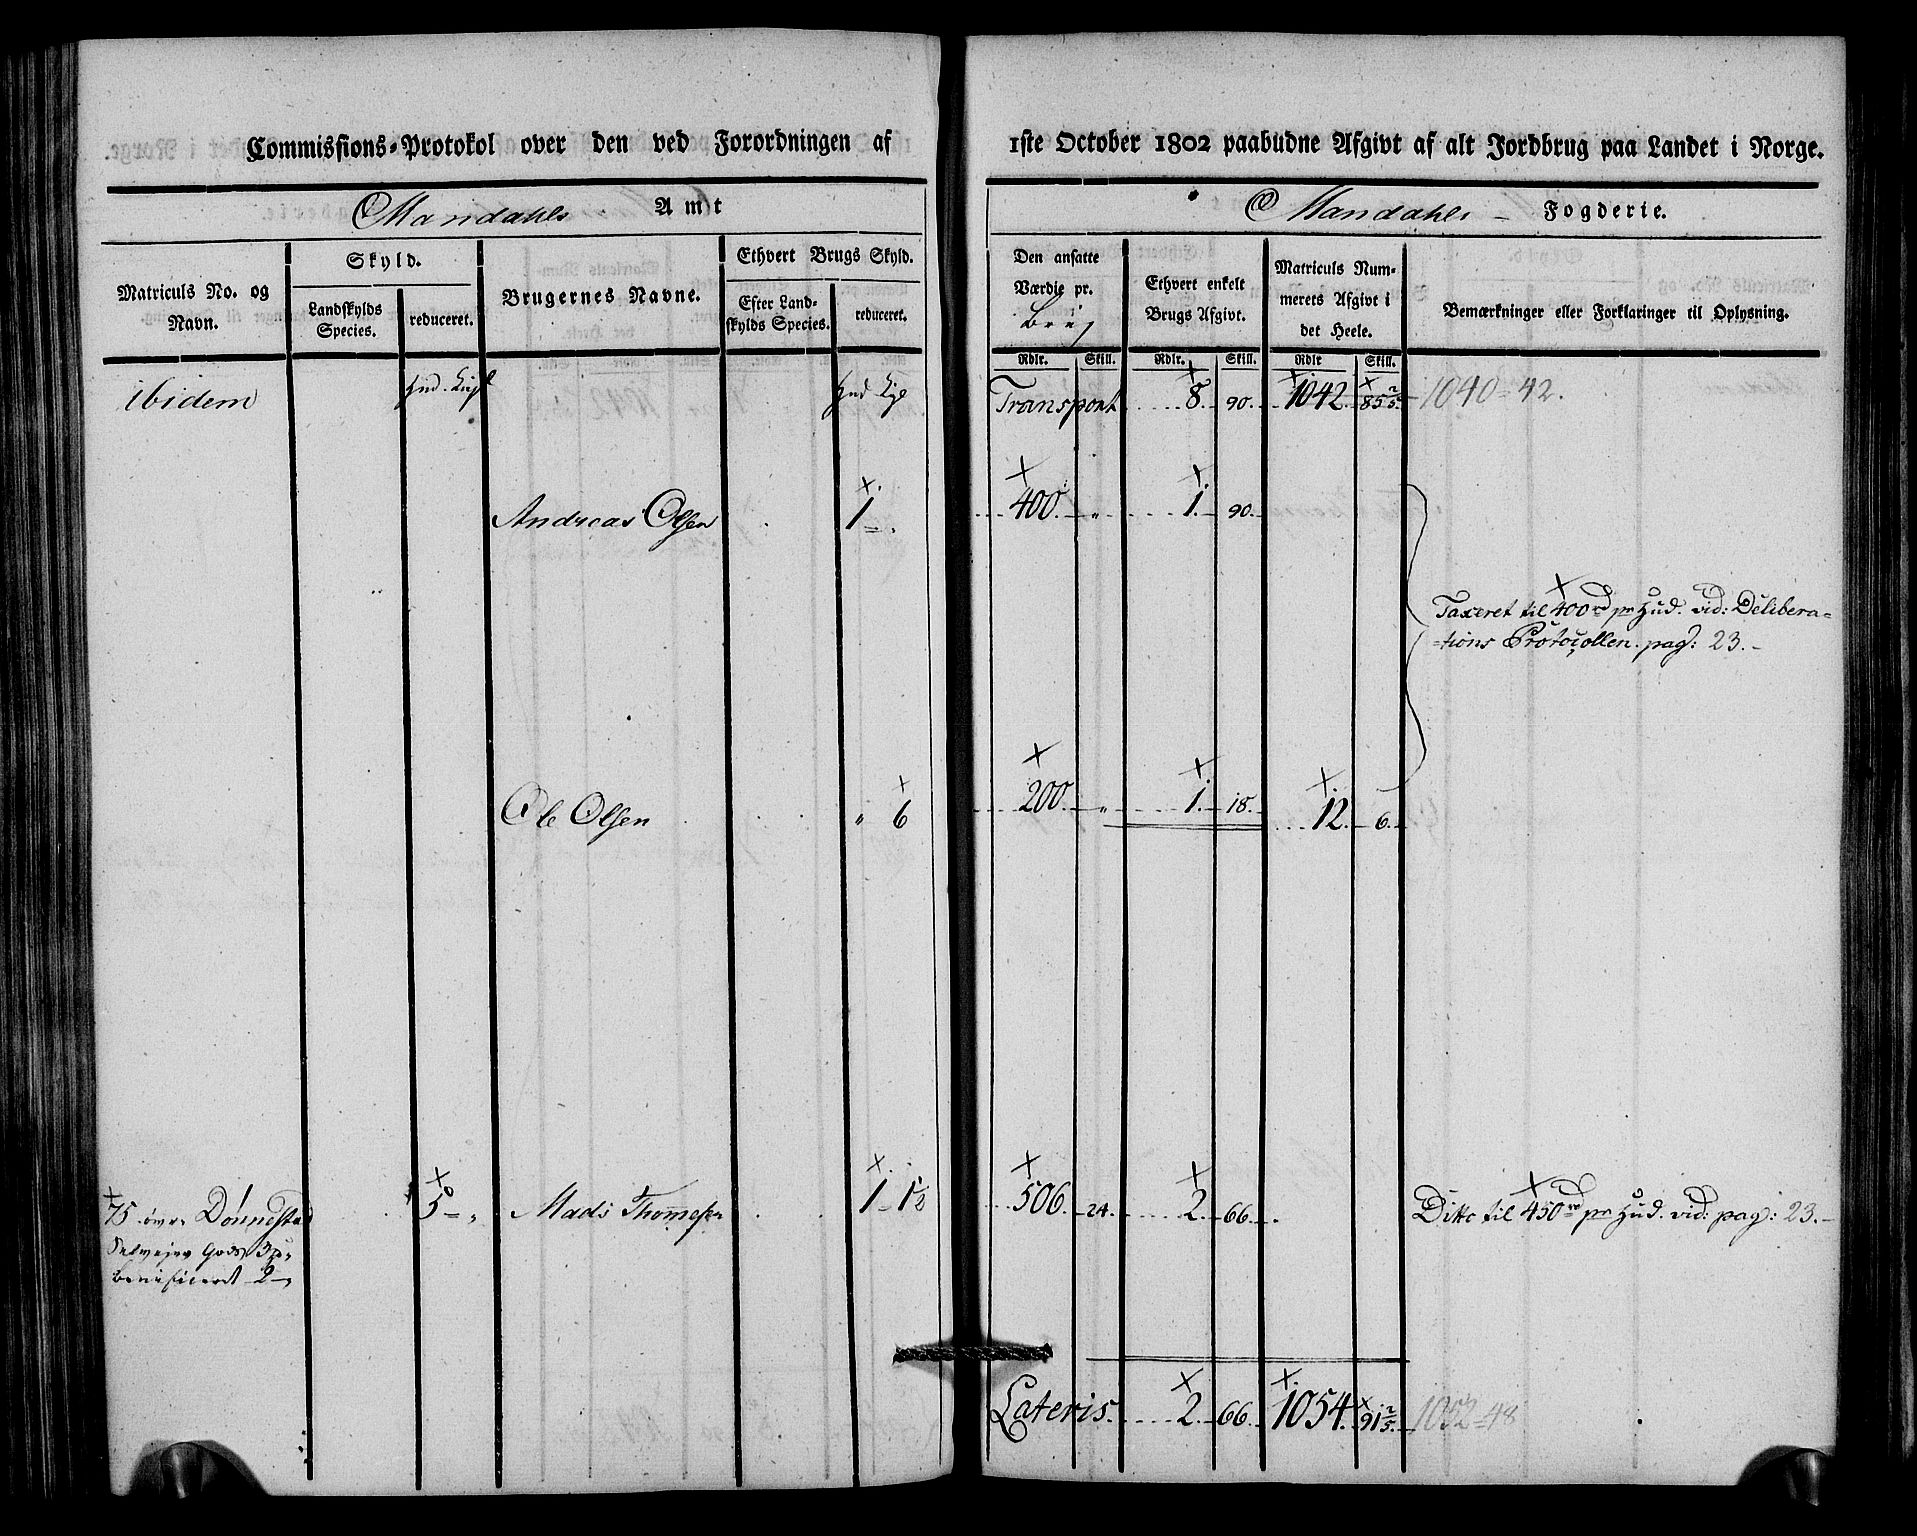 Commissions-Protokol over den ved Forordningen af 1ste October 1802 paabudne Afgivt af alt Jordbrug paa Landet i Norge.
Mandahls Amt
Mandahls Fogderie.
Matriculs No. og Navn.
Skyld.
Landskylds Species.
reduceret.
Brugernes Navne.
Ethvert Brugs Skyld.
Efter Landskylds Species.
reduceret.
Den ansatte Værdie pr. Brug
Ethvert enkelt Brugs Afgivt.
Matriculs Nummerets Afgivt i det Heele.
Bemærkninger eller Forklaringer til Oplysning.
Rdlr. Skill. Rdlr. Skill. Rdlr Skill.
ibidem Hud. Hud Transport 8. 90. 1042. 85 2/5. 1040=42.
Andreas Olsen 1 400. 1. 90.
Taxeret til 400rd pr Hud. vid: Delibera=
=tions Protocollen. pag: 23.
Ole Olsen " 6 200. " 1. 18. 12. 6.
75 övre Dönnestad 5 " Mads Thomesen 1 1½ 506. 24. 2. 66. Ditto til 450rd pr Hud. vid: pag: 23.
Selvejer Gods 3
benificeret 2
Lateris. 2. 66. 1054. 91 2/5. 1052=48